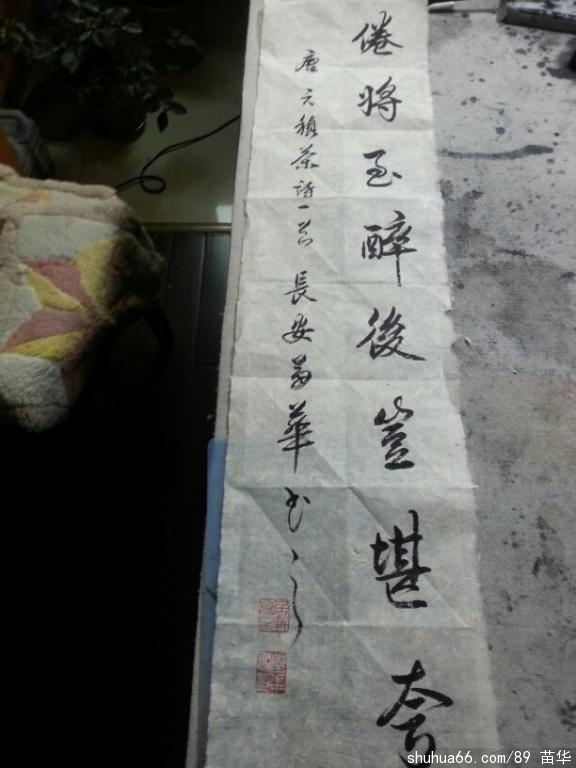 倦将至醉後豈堪夸
唐元稹茶詩一首 長安苗華书之
shuhua66.com/89 苗华